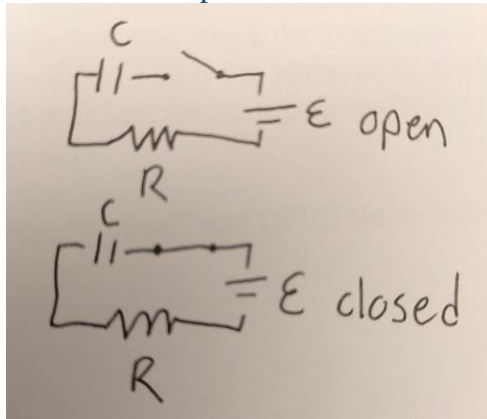 C
ε open
R
C
ε closed
R